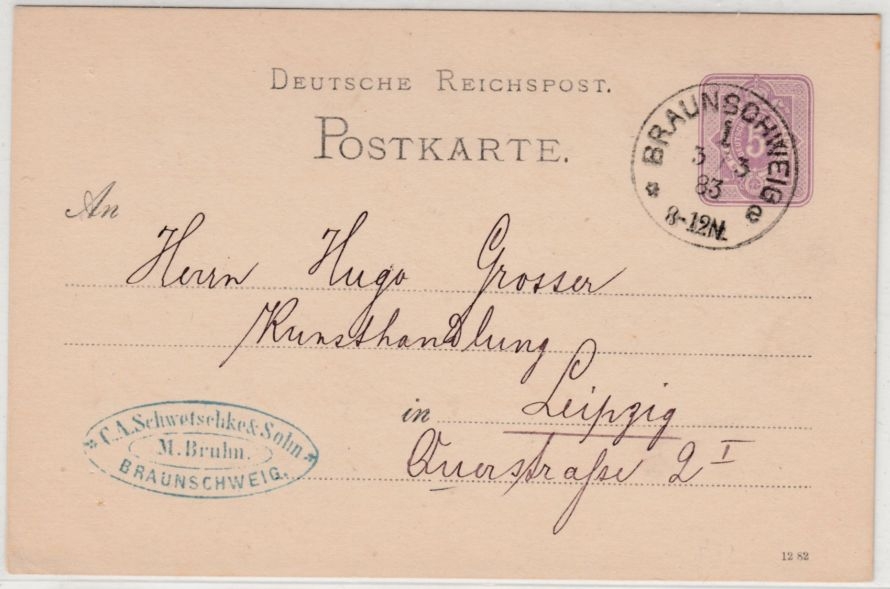 DEUTSCHE REICHSPOST.
POSTKARTE.
BRAUNSCHWEIG
1
3 3
83
8-12N.
5
An
Herrn Hugo Grosser
Kunsthandlung
in Leipzig
Querstraße 2 I
C.A. Schwetschke & Sohn
M. Bruhn.
BRAUNSCHWEIG.
12 82